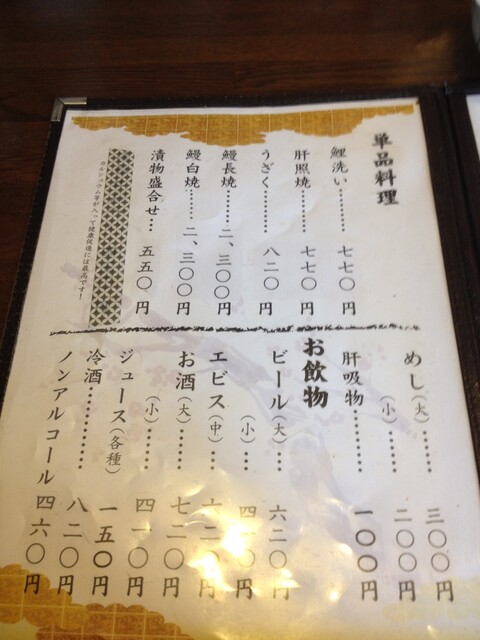 単品料理
鯉洗い………七七〇円
肝照焼………七七〇円
うざく………八二〇円
鰻長焼……二、三〇〇円
鰻白焼……二、三〇〇円
漬物盛合せ…五五〇円
カルシウム等が入って健康促進には最高です！
めし（大）……三〇〇円
（小）……二〇〇円
肝吸物………一〇〇円
お飲物
ビール（大）……六二〇円
（小）……四一〇円
エビス（中）……六二〇円
お酒（大）……七二〇円
（小）……四一〇円
ジュース（各種）一五〇円
冷酒………八二〇円
ノンアルコール 四六〇円